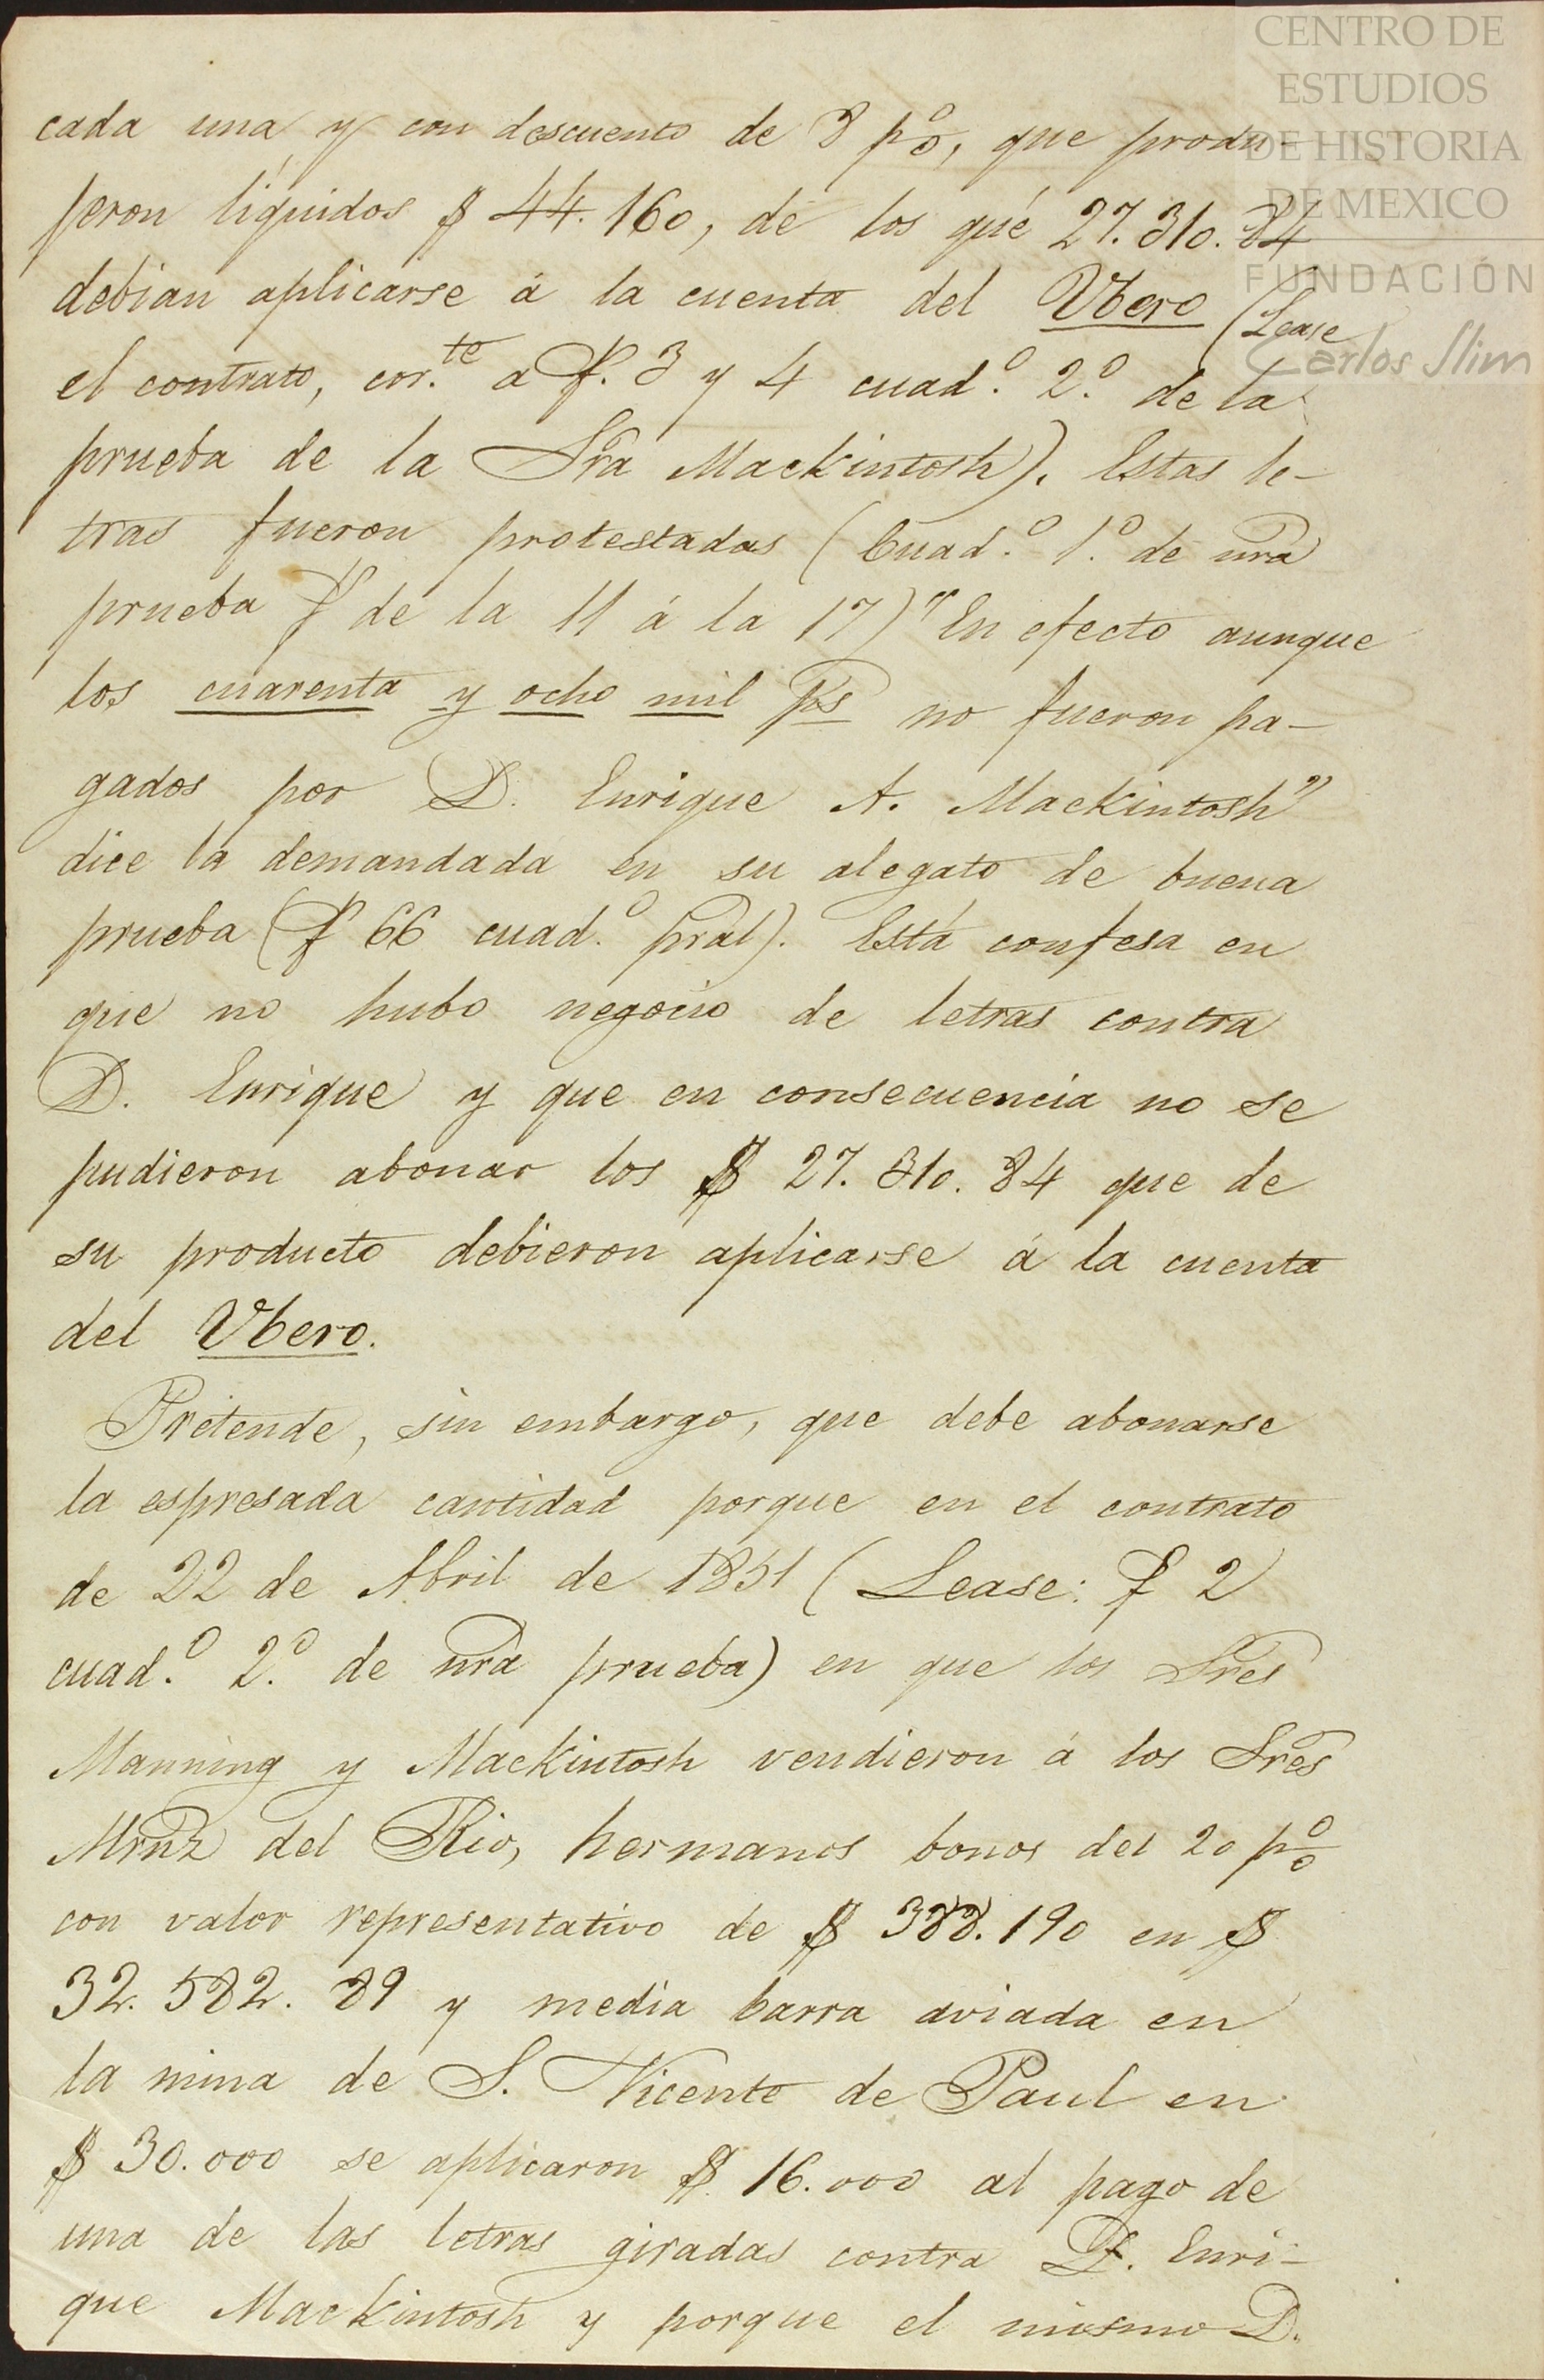 CENTRO DE
ESTUDIOS
DE HISTORIA
DE MEXICO
FUNDACIÓN
Carlos Slim
cada una y con descuento de 8 p%, que produ-
jeron liquidos $ 44.160, de los que 27.310.84
debian aplicarse á la cuenta del Ubero (Lease
el contrato, cor.te a f. 3 y 4 cuad.o 2.o de la
prueba de la Sra Mackintosh). Estas le-
tras fueron protestadas (Cuad.o 1.o de nra
prueba f de la 11 á la 17) "En efecto aunque
los cuarenta y ocho mil ps no fueron pa-
gados por D. Enrique A. Mackintosh"
dice la demandada en su alegato de buena
prueba (f 66 cuad.o pral). Está confesa en
que no hubo negocio de letras contra
D. Enrique y que en consecuencia no se
pudieron abonar los $ 27.310.84 que de
su producto debieron aplicarse á la cuenta
del Ubero.
Pretende, sin embargo, que debe abonarse
la espresada cantidad porque en el contrato
de 22 de Abril de 1851 (Lease: f 2
cuad.o 2.o de nra prueba) en que los Sres
Manning y Mackintosh vendieron á los Sres
Mrnz del Rio, hermanos bonos del 20 p%
con valor representativo de $ 388.190 en $
32.582.89 y media barra aviada en
la mina de S. Vicente de Paul en
$ 30.000 se aplicaron $ 16.000 al pago de
una de las letras giradas contra D. Enri-
que Mackintosh y porque el mismo D.